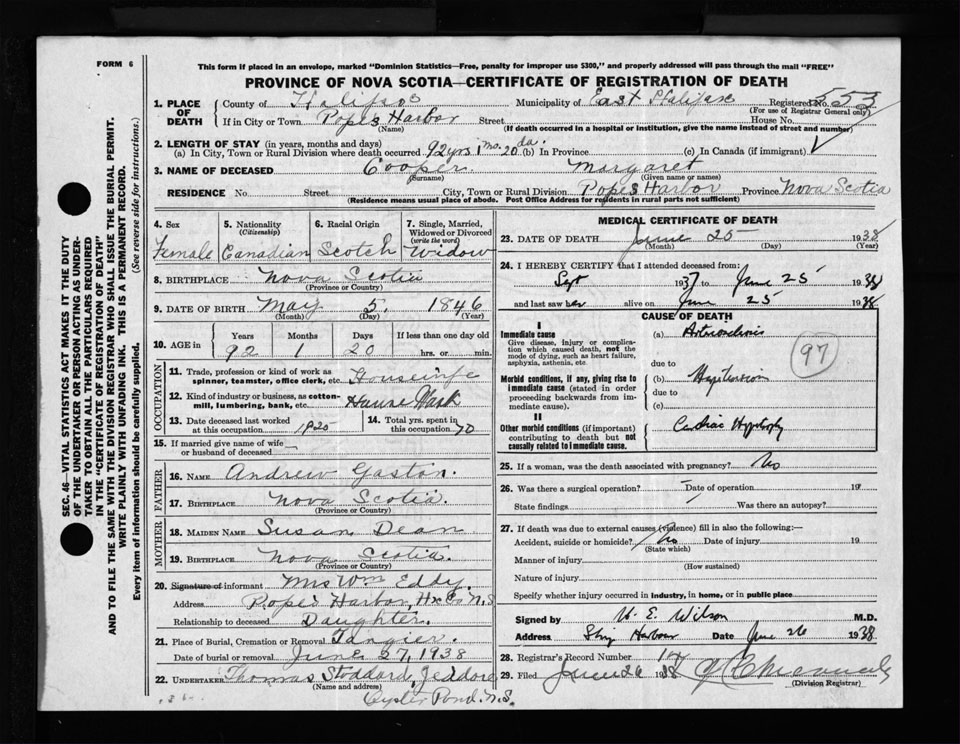 FORM 6
This form if placed in an envelope, marked "Dominion Statistics—Free, penalty for improper use $300," and properly addressed will pass through the mail "FREE"
PROVINCE OF NOVA SCOTIA—CERTIFICATE OF REGISTRATION OF DEATH
SEC. 46—VITAL STATISTICS ACT MAKES IT THE DUTY
OF THE UNDERTAKER OR PERSON ACTING AS UNDER-
TAKER TO OBTAIN ALL THE PARTICULARS REQUIRED
IN THE "CERTIFICATE OF REGISTRATION OF DEATH"
AND TO FILE THE SAME WITH THE DIVISION REGISTRAR WHO SHALL ISSUE THE BURIAL PERMIT.
WRITE PLAINLY WITH UNFADING INK. THIS IS A PERMANENT RECORD.
Every item of information should be carefully supplied. (See reverse side for instructions.)
1. PLACE OF DEATH County of Halifax Municipality of East Halifax Registered No. 553
(For use of Registrar General only)
If in City or Town Pope's Harbor Street House No.
(Name) (If death occurred in a hospital or institution, give the name instead of street and number)
2. LENGTH OF STAY (in years, months and days)
(a) In City, Town or Rural Division where death occurred 92 yrs 1 mo. 20 da. (b) In Province (c) In Canada (if immigrant)
3. NAME OF DECEASED Cooper Margaret
(Surname) (Given name or names)
RESIDENCE No Street City, Town or Rural Division Popes Harbor Province Nova Scotia
(Residence means usual place of abode. Post Office Address for residents in rural parts not sufficient)
4. Sex 5. Nationality (Citizenship) 6. Racial Origin 7. Single, Married, Widowed or Divorced (write the word)
Female Canadian Scotch Widow
8. BIRTHPLACE Nova Scotia
(Province or Country)
9. DATE OF BIRTH May 5, 1846
(Month) (Day) (Year)
10. AGE in Years Months Days If less than one day old
92 1 20 hrs. or min.
OCCUPATION
11. Trade, profession or kind of work as spinner, teamster, office clerk, etc. Housewife
12. Kind of industry or business, as cotton-mill, lumbering, bank, etc. House Work
13. Date deceased last worked at this occupation 1925 14. Total yrs. spent in this occupation 70
15. If married give name of wife or husband of deceased
FATHER
16. NAME Andrew Gaston.
17. BIRTHPLACE Nova Scotia.
(Province or Country)
MOTHER
18. MAIDEN NAME Susan Dean
19. BIRTHPLACE Nova Scotia.
(Province or Country)
20. Signature of informant Mrs Wm Eddy.
Address Popes Harbor, Hx Co N.S
Relationship to deceased Daughter.
21. Place of Burial, Cremation or Removal Tangier.
Date of burial or removal June 27, 1938
22. UNDERTAKER Thomas Stoddard, Jeddore
(Name and address)
Oyster Pond. N.S.
MEDICAL CERTIFICATE OF DEATH
23. DATE OF DEATH June 25 1938
(Month) (Day) (Year)
24. I HEREBY CERTIFY that I attended deceased from:
Sept 1937 to June 25 1938
and last saw her alive on June 25 1938
CAUSE OF DEATH
I
Immediate cause
Give disease, injury or complication which caused death, not the mode of dying, such as heart failure, asphyxia, asthenia, etc.
(a) Arteriosclerosis
97
due to
Morbid conditions, if any, giving rise to immediate cause (stated in order proceeding backwards from immediate cause).
(b) Hypertension
due to
(c)
II
Other morbid conditions (if important) contributing to death but not causally related to immediate cause.
Cardiac Hypertrophy
25. If a woman, was the death associated with pregnancy? No
26. Was there a surgical operation? Date of operation 19
State findings Was there an autopsy?
27. If death was due to external causes (violence) fill in also the following:—
Accident, suicide or homicide? No Date of injury 19
(State which)
Manner of injury
(How sustained)
Nature of injury
Specify whether injury occurred in industry, in home, or in public place
Signed by W. E. Wilson M.D.
Address Ship Harbour Date June 26 1938
28. Registrar's Record Number 14
29. Filed June 26 1938
(Division Registrar)